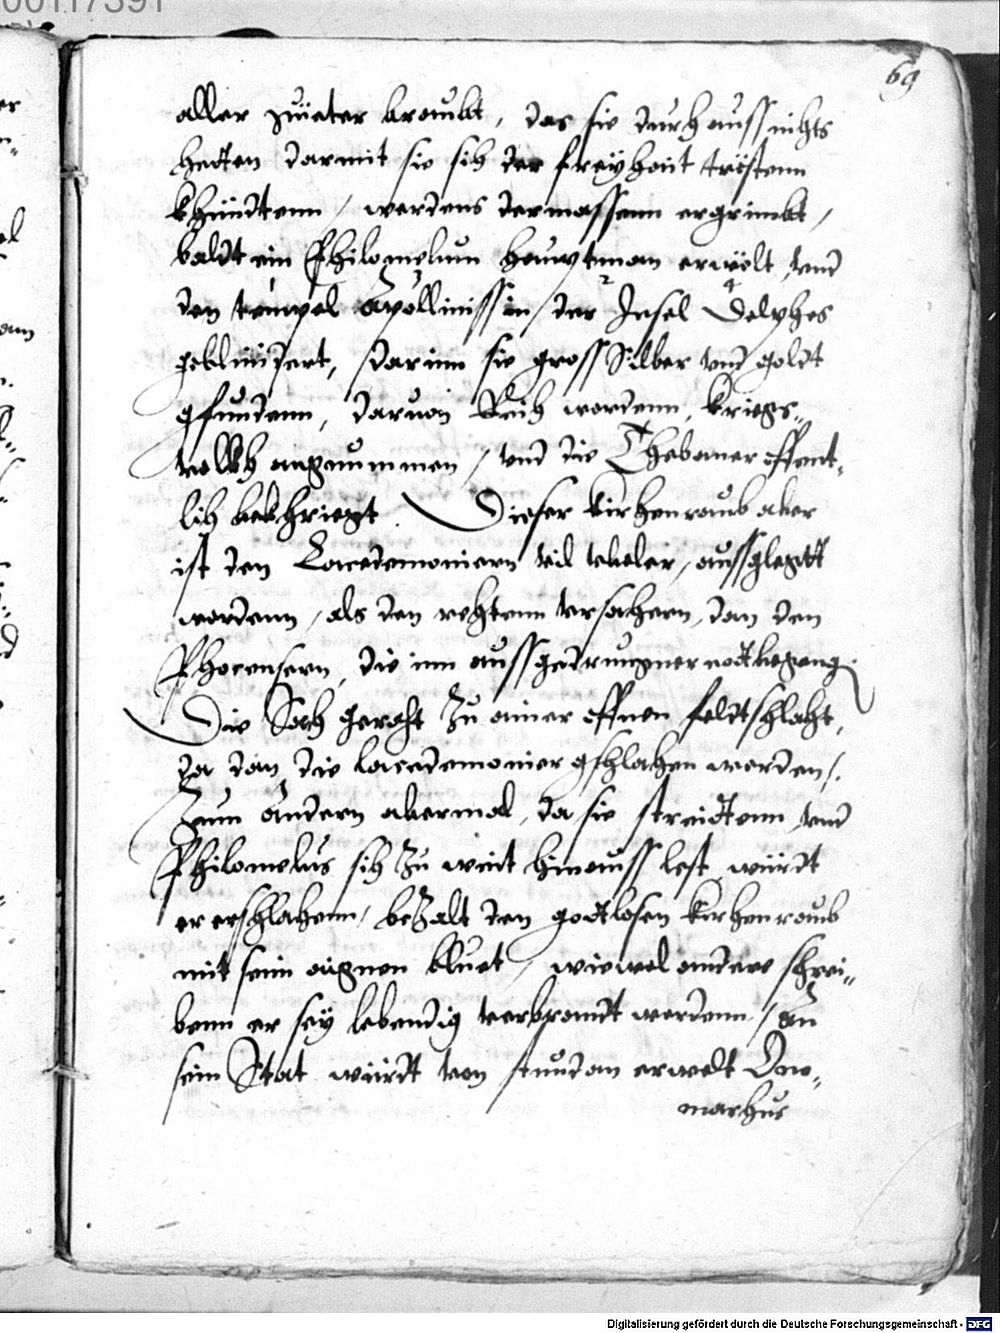 00117391
69
aller güeter beraubt, das sie durchauss nichts
hetten darmit sie sich der freyhait trösten
khündtenn / werdens dermassenn ergrimbt /
baldt ein Philomelum hauptman erwölt, vnd
den tempel Apollinis in der Insel Delphos
geblündert, darinn sie gross Silber vnd goldt
gfundenn, daruon Reich wordenn, kriegs„
volckh angnummen / vnd die Thebaner offent„
lich bekhriegt. Dieser kirchenraub aber
ist den Lacedemoniern vil vbeler / aussglegtt
wordenn / als den rechtenn vrsachern, dan den
Phocensern, die inn auss gedrungner nodt begang.
Die Sach geraht Zu ainer offnen feldtschlacht,
da dan die Lacedemonier gschlahen werden /.
Zum andern abermal, da sie streidtenn vnd
Philomelus sich Zu weit hinauss lest würdt
er erschlahenn / bezalt den godtlosen kirchenraub
mit seim aignen bluet / wiewol andere schrei„
benn er sey lebendig verbrandt werdenn / An
sein Stat würdt von stundan erwelt Ono„
marhus
Digitalisierung gefördert durch die Deutsche Forschungsgemeinschaft - DFG